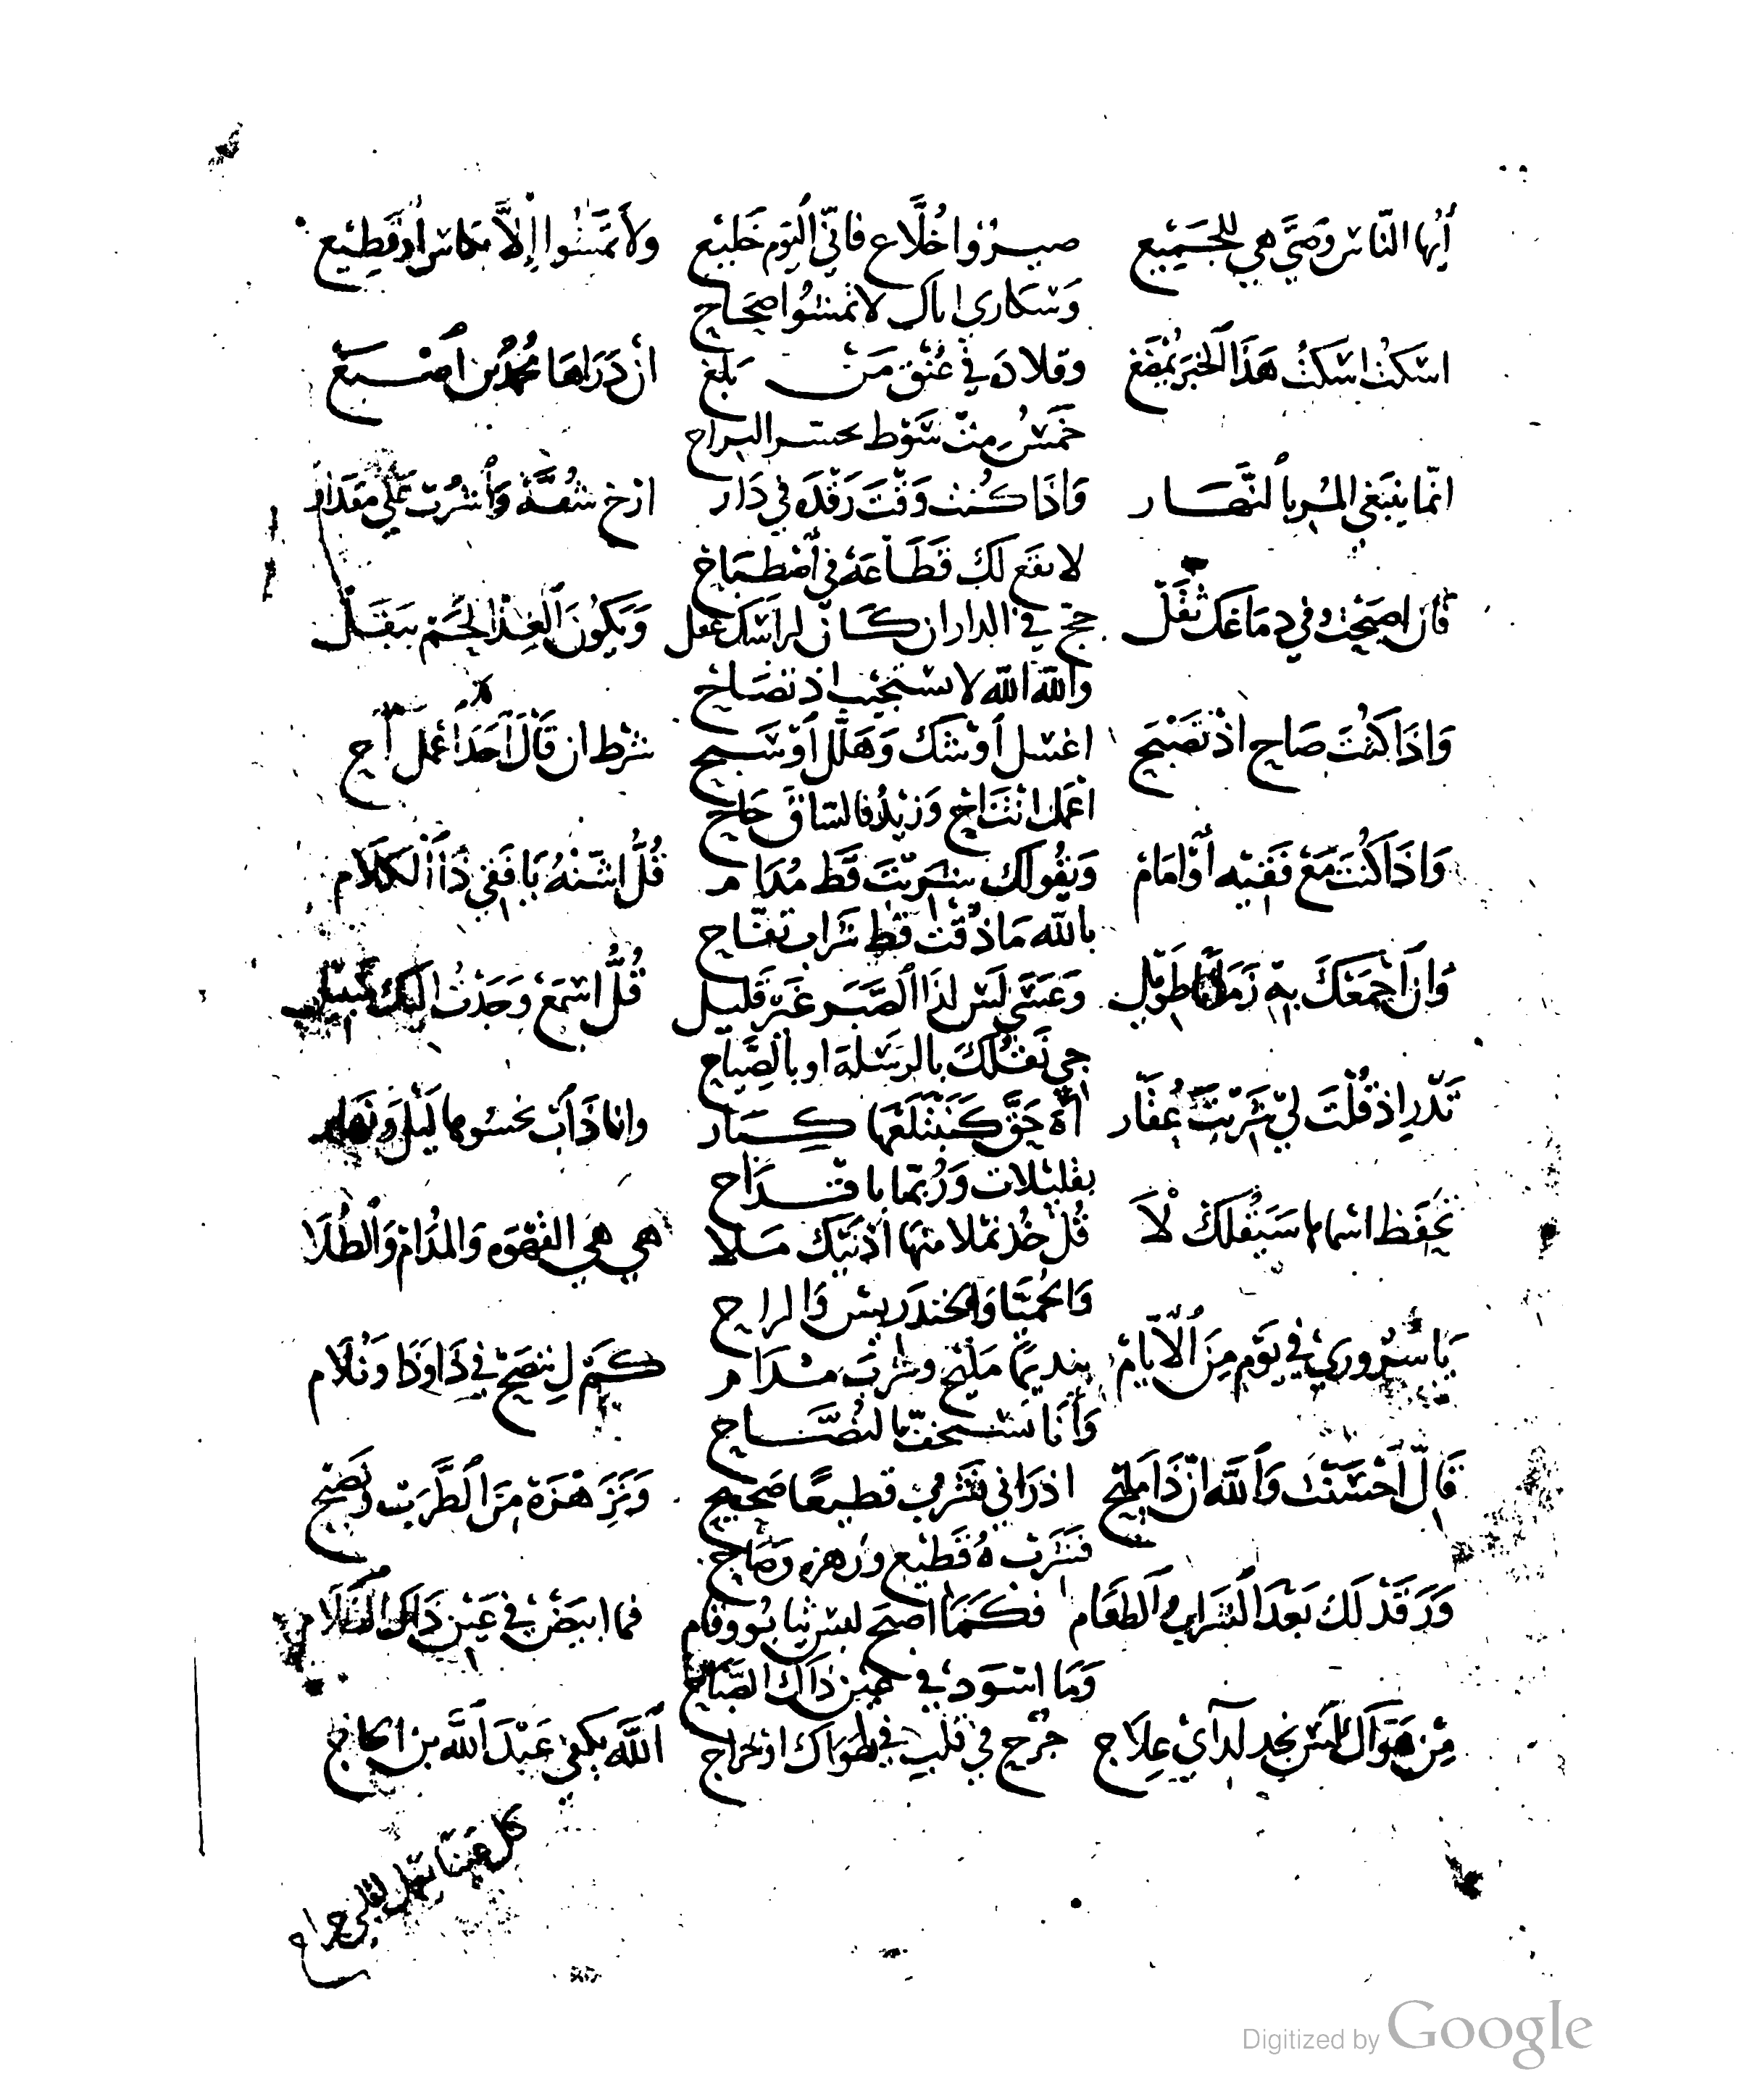 أيها الناس وصيَّ هي للجميع صيروا خُلَّاع فانّي اليوم خليع ولا تمشوا إلاَّ بكاس او قطيع
وسكارى اياك لا تمشوا صحاح
اسكت اسكت هذا الخبر يمضغ وقلادَ في عنق من بلغ ان دراها محمد بن اصبغ
خمس مية سوط
انّما ينبغي السر بالنهار واذا كنت وقت رقده في دار ارخ شقَّة واشرب على مقدار
لا تقع لك قطاعة في اصطباح
فان اصبحت وفي دماغك ثقل حج في الدار ان كان لراسك عقل ويكون الغذا لحم ببقل
والله الله لا تستجيب اذ تصاح
واذا كنت صاح اذ تصبح اغسل اوشك وهلل او سبح شرط ان قال احد اعمل اح
اعمل انت اخ وزيد فالساق حاح
واذا كنت مع فقيه أو امام ويقولك شربت قط مدام قُلُّ اشّنهُ يا فقي ذا الكلام
بالله ما ذقت قط شراب تفّاح
وان اجمعك به زماناً طويل وعسى لس لذا الصبر غير قليل قُلُّ اسمع وجدت اليك سبيل
جي نقلك بالرسلة او بالصياح
تدر اذ قلت لي شربت عقار اه حق كنبلعها كبار وانما ذاب نحسوها ليل ونهار
بقليلات وربّما باقداح
تحفظ اسماها سيقلك لا قل خذ تملا منها اذنيك ملا هي هي القهوه والمدام والطلا
والحميّا والخندريس والراح
يا سروري في يوم من الايام بنديما مليح وشرب مدام كم ل ننصح في ذا وذا ونلام
وانا نستخفّ بالنصّاح
قال احسنت والله ان ذا مليح اذ راني نشرب قطيعًا صحيح ونزهزه من الطرب ونصيح
فشرب ه قطيع وزهزه وصاح
ورقد لك بعد الشراب والطعام فكما اصبح لبس ثيابو وقام فما ابيض في عين ذاك الظلام
وما اسود في عين ذاك الصباح
من هواك لس نجد لداي علاج جرح في قلبي في هواك اذ لحراج الله يكفي عبد الله بن الحاج
كل عينا لقلبي جراح
Digitized by Google